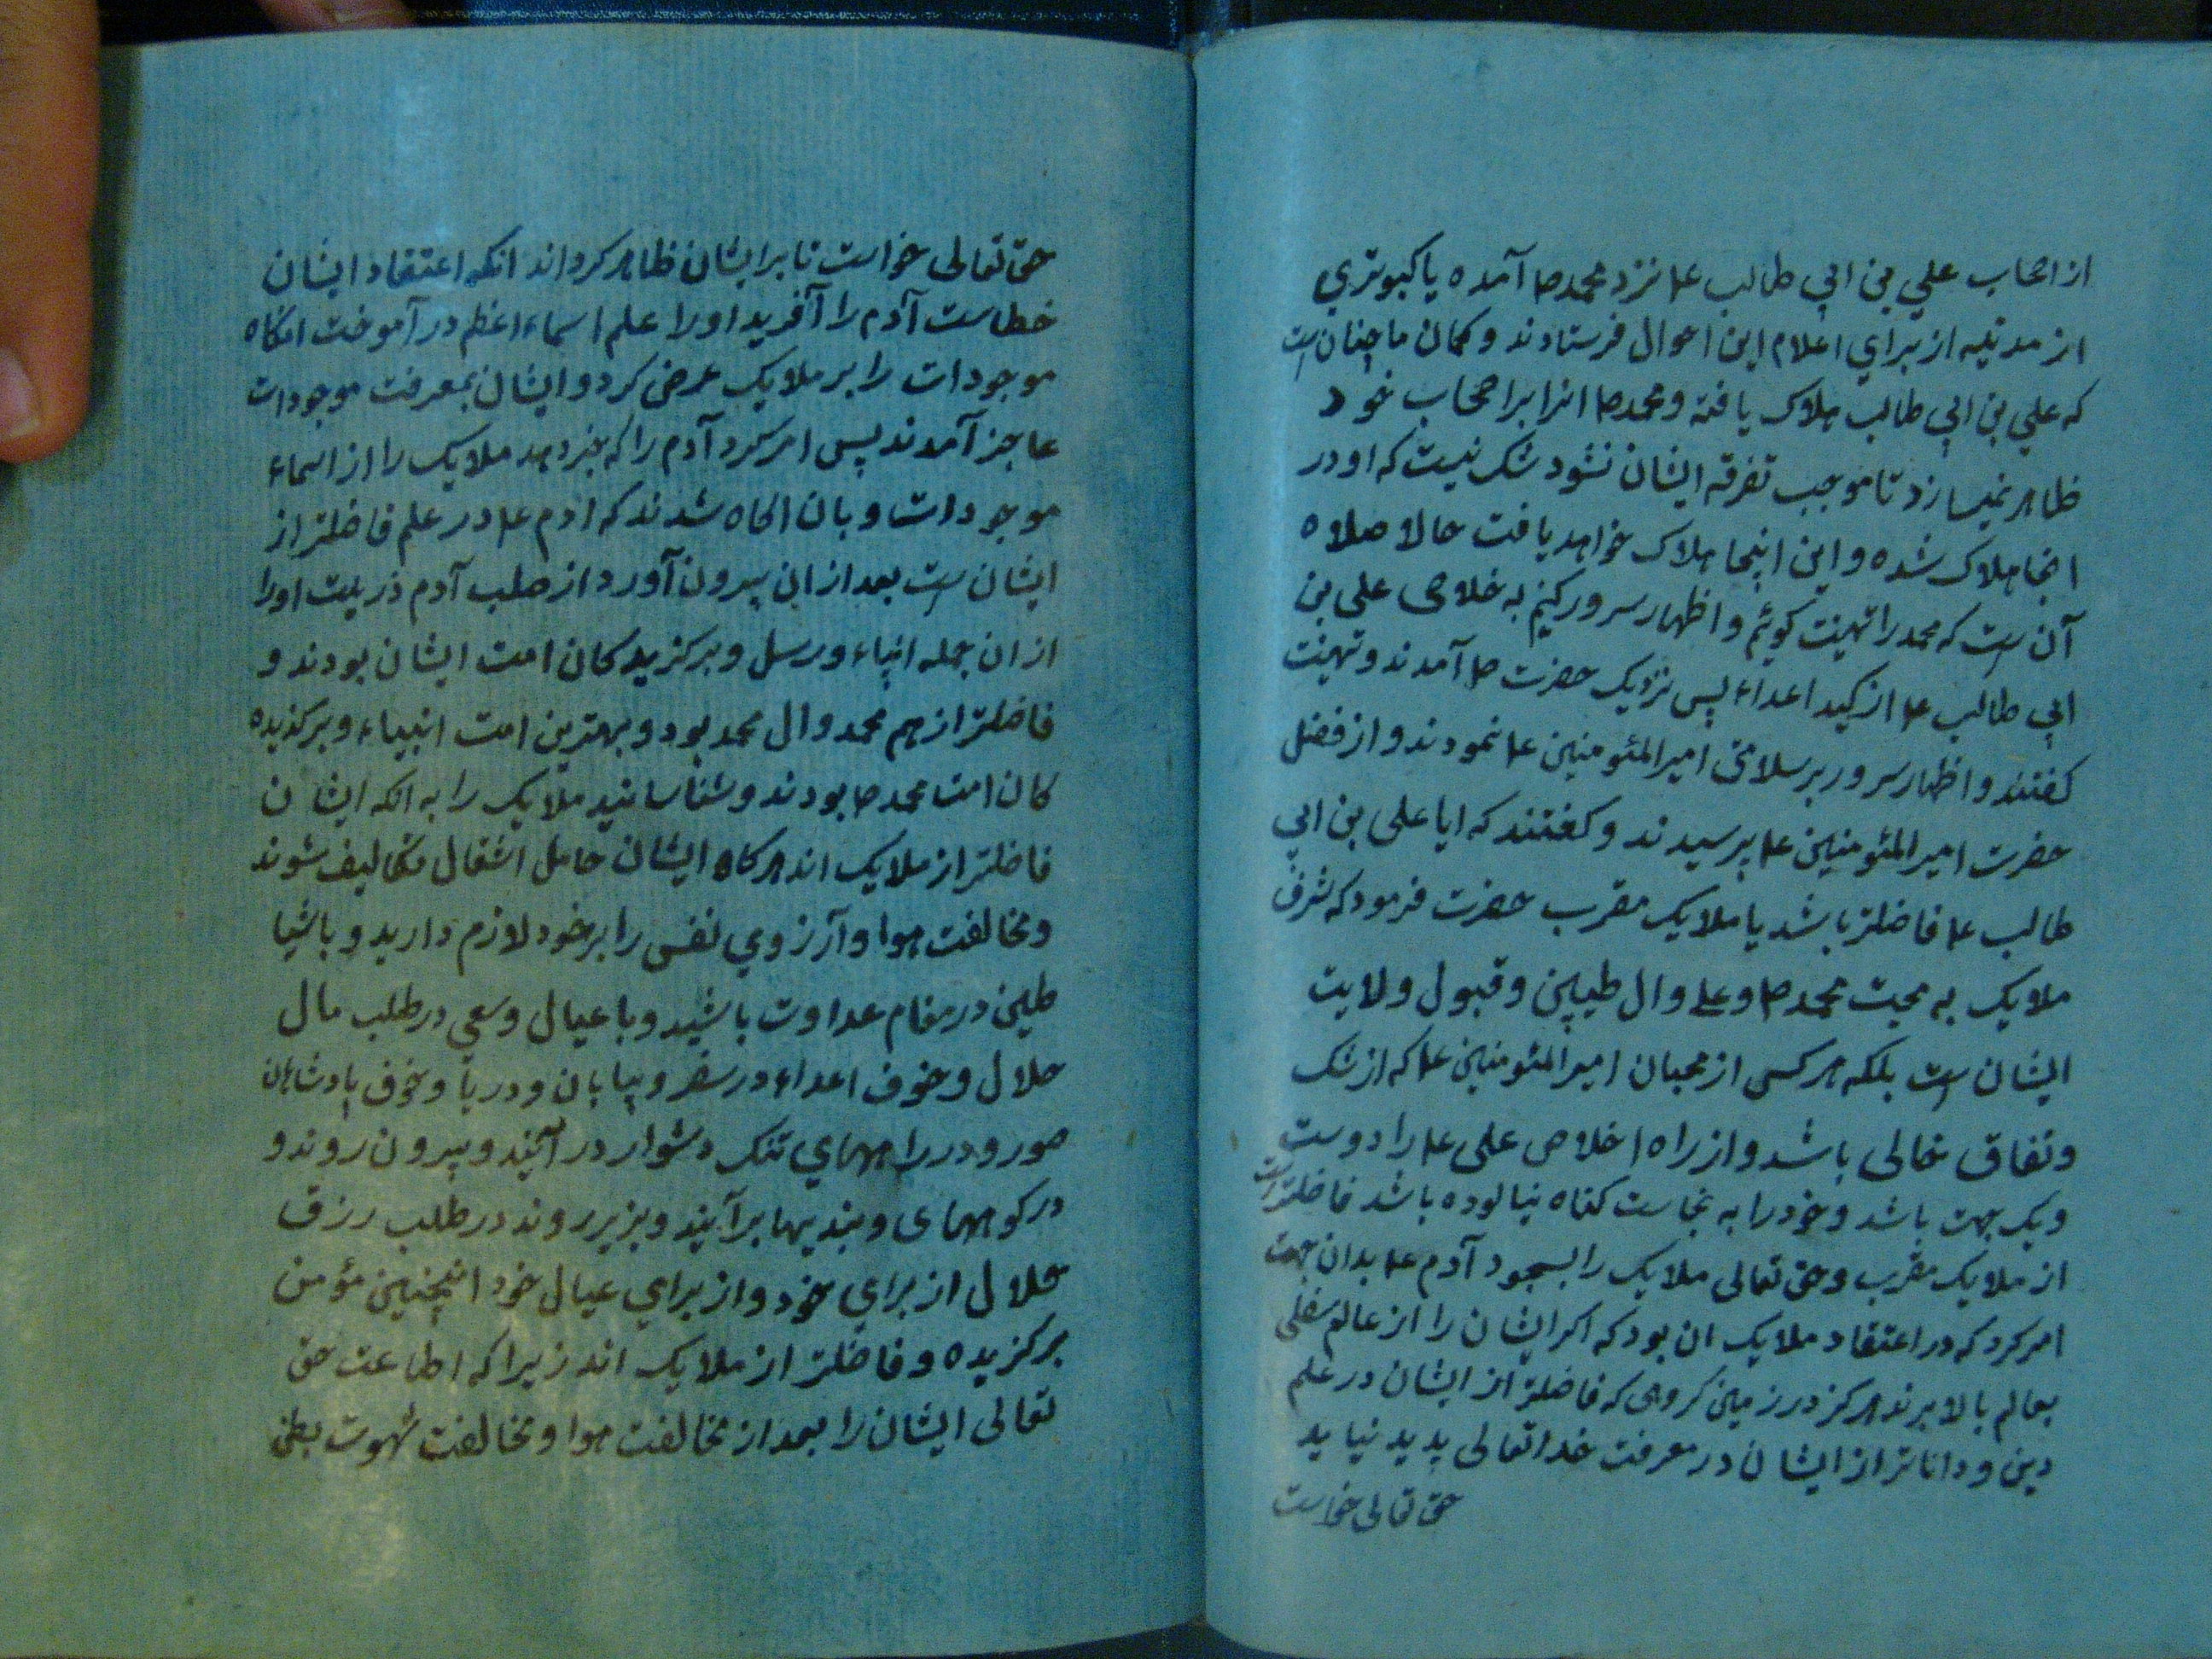 از اصحاب علي بن ابي طالب ع‍ا نزد محمد ص‍ا آمده يا كبوتري
از مدينه از براي اعلام اين احوال فرستادند و كمان ما چنان است
كه علي بن ابي طالب هلاك يافته و محمد ص‍ا انرا بر اصحاب خود
ظاهر نميسازد تا موجب تفرقه ايشان نشود شك نيست كه او در
انجا هلاك شده و اين اينجا هلاك خواهد يافت حالا صلاه
آن است كه محمد را تهينت كوئم و اظهار سرور كنيم به خلاصى على بن
ابي طالب ع‍ا از كيد اعداء پس نزديك حضرت ص‍ا آمدند و تهينت
كفتند و اظهار سرور بر سلامتى امير المئومنين ع‍ا نمودند و از فضل
حضرت امير المئومنين ع‍ا پرسيدند و كفتند كه ايا على بن ابي
طالب ع‍ا فاضلتر باشد يا ملايك مقرب حضرت فرمود كه شرف
ملايك به محبت محمد ص‍ا و على و ال طيبين و قبول ولايت
ايشان است بلكه هر كسى از محبان امير المئومنين ع‍ا كه از شك
و نفاق خالى باشد و از راه اخلاص على ع‍ا را دوست
و يك جهت باشد و خود را به نجاست كناه نيالوده باشد فاضلتر است
از ملايك مقرب و حق تعالى ملايك را بسجود آدم ع‍ا بدان جهت
امر كرد كه در اعتقاد ملايك ان بود كه اكر ايشان را از عالم سفلى
بعالم بالا برند هركز در زمين كروهى كه فاضلتر از ايشان در علم
دين و داناتر از ايشان در معرفت خدا تعالى پديد نيايد
حق تعالى خواست
حق تعالى خواست تا بر ايشان ظاهر كرداند انكه اعتقاد ايشان
خطاست آدم را آفريد او را علم اسماء اعظم در آموخت انكاه
موجودات را بر ملايك عرض كرد و ايشان بمعرفت موجودات
عاجز آمدند پس امر كرد آدم را كه خبر دهد ملايك را از اسماء
موجودات و بان اكاه شدند كه ادم ع‍ا در علم فاضلتر از
ايشان است بعد از ان بيرون آورد از صلب آدم ذريت او را
از ان جمله انبياء و رسل و بركزيدكان امت ايشان بودند و
فاضلتر از هم محمد و ال محمد بود و بهترين امت انبياء و بركزيده
كان امت محمد ص‍ا بودند و شناسانيد ملايك را به انكه ايشان
فاضلتر از ملايك اند هركاه ايشان حامل اشقال تكاليف شوند
و مخالفت هوا و آرزوي نفس را بر خود لازم داريد و باشيا
طين در مقام عداوت باشيد و با عيال و سعى در طلب مال
حلال و خوف اعداء در سفر و بيابان و دريا و خوف پادشاهان
صور و در راههاي تنك دشوار در آيند و بيرون روند و
در كوههاى و بنديها برآيند و بزير روند در طلب رزق
حلال از براي خود و از براي عيال خود اينچنين مؤمن
بركزيده و فاضلتر از ملايك اند زيرا كه اطاعت حق
تعالى ايشان را بعد از مخالفت هوا و مخالفت شهوت بطن